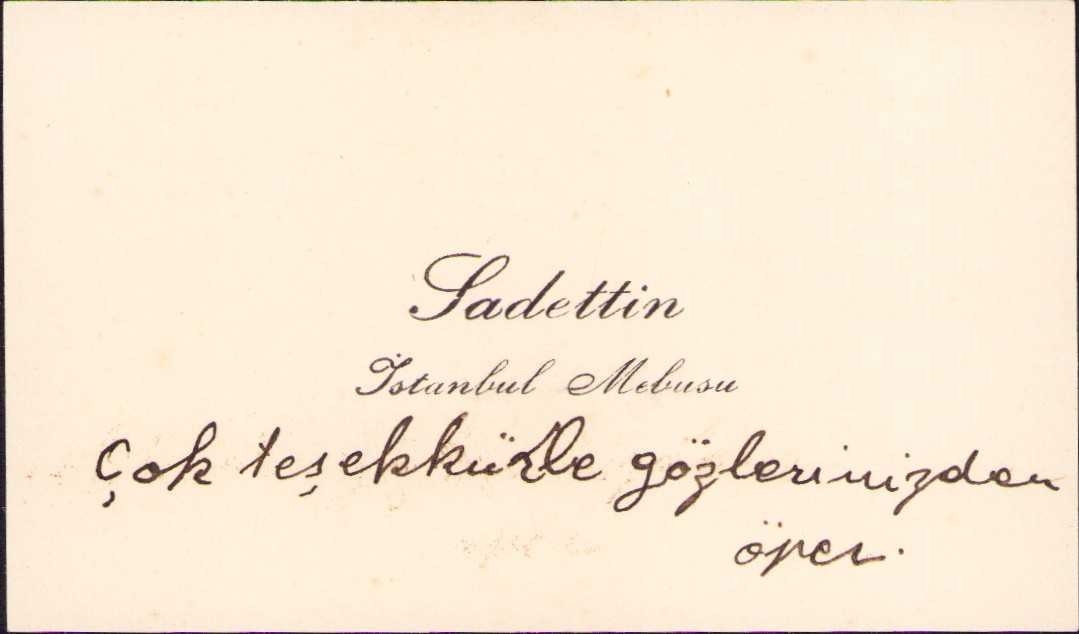 Sadettin
İstanbul Mebusu
Çok teşekkürle gözlerinizden
öper.